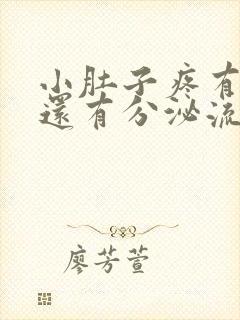 小肚子疼有
還有分泌流
廖芳萱